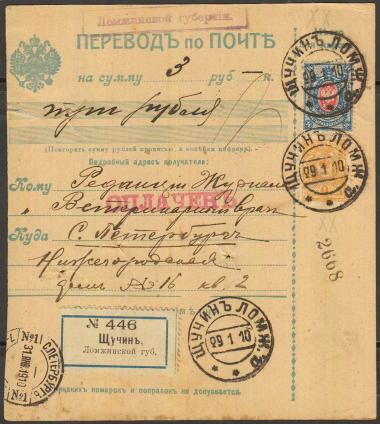 Ломжинской губерніи.
ПЕРЕВОДЪ по ПОЧТѢ
на сумму 3 руб. – к.
три рубля
(Повторить сумму рублей прописью, а копѣйки цифрами).
Подробный адресъ получателя:
Кому Редакціи Журнала
"Ветеринарный врач
ОПЛАЧЕНЪ
Куда С. Петербургъ
Нижегородская
домъ № 16 кв. 2
№ 446
Щучинъ,
Ломжинской губ.
ЩУЧИНЪ ЛОМЖ. Г.
29 1 10
ЩУЧИНЪ ЛОМЖ. Г.
29 1 10
2668
ЩУЧИНЪ ЛОМЖ. Г.
29 1 10
С.ПЕТЕРБУРГЪ
31 ЯНВ 1910
№1
№1
помарокъ и поправокъ не допускается.